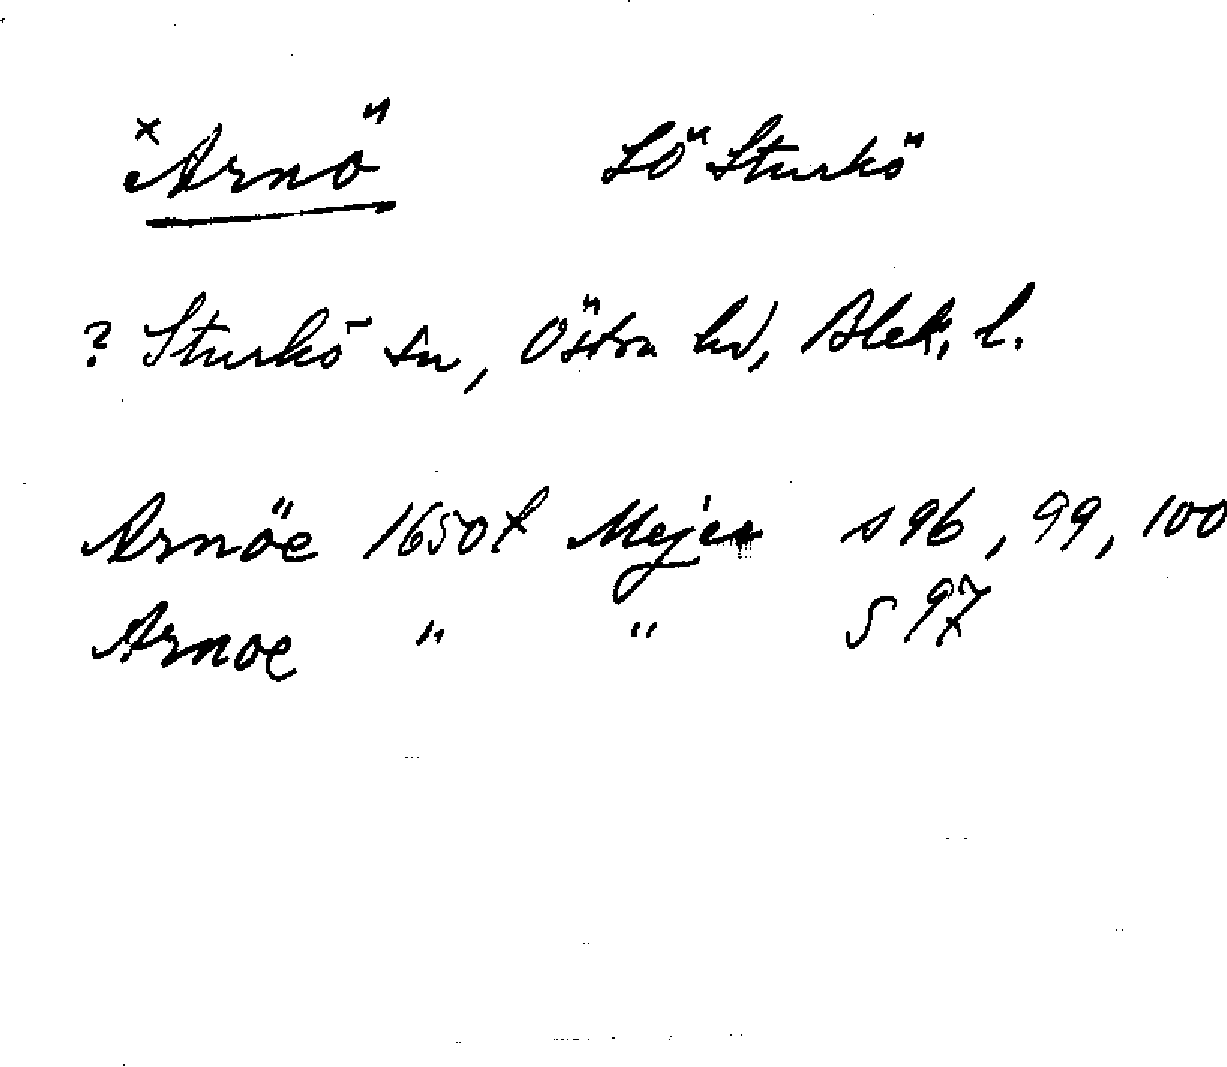 ×Arnö SÖ Sturkö
? Sturkö sn, Östra hd, Blek. l.
Arnöe 1650t Mejer s 96, 99, 100
Arnoe " " S 97